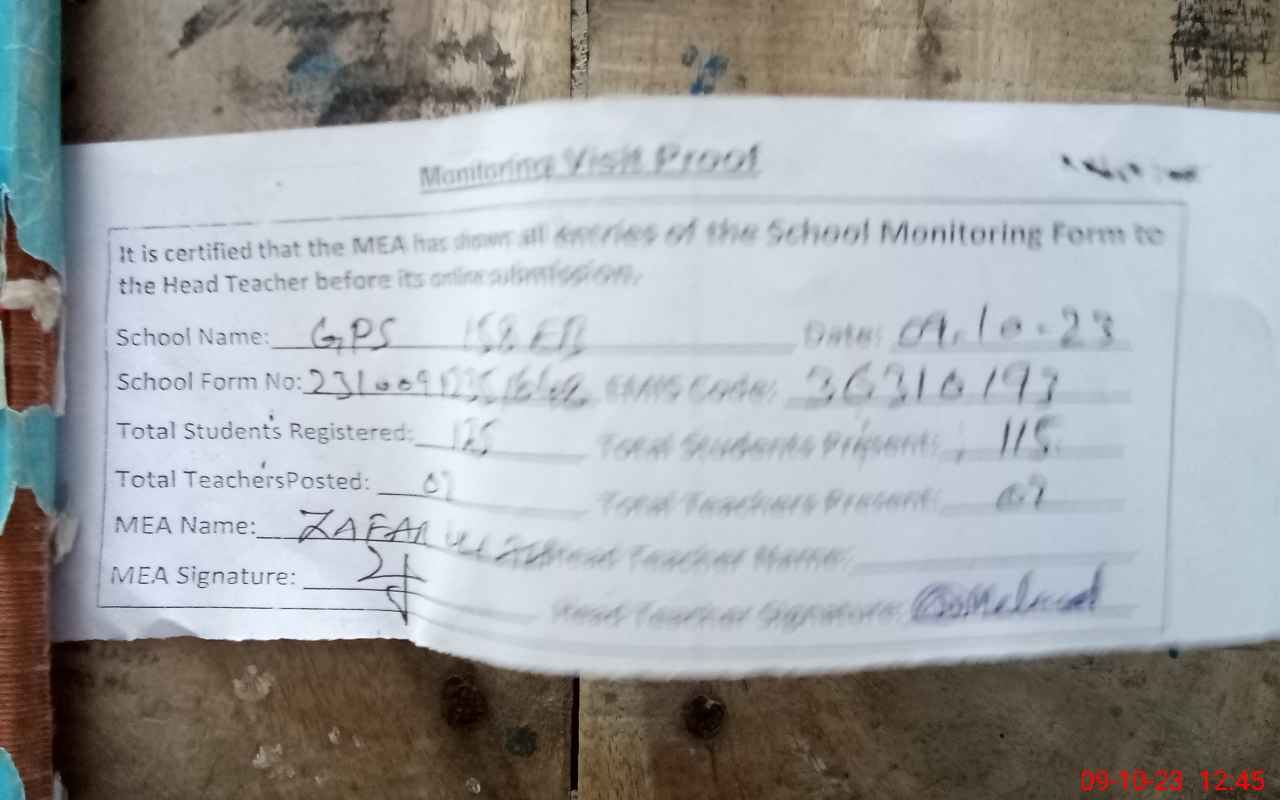 Monitoring Visit Proof
It is certified that the MEA has shown all entries of the School Monitoring Form to
the Head Teacher before its online submission.
School Name: GPS 158 EB Date: 09.10.23
School Form No: EMIS Code: 36310193
Total Students Registered: 125 Total Students Present: 115
Total TeachersPosted: Total Teachers Present:
MEA Name: ZAFAR Head Teacher Name:
MEA Signature: Head Teacher Signature:
09-10-23 12:45